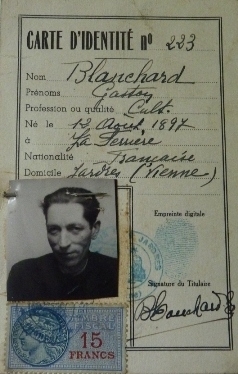 CARTE D'IDENTITÉ Nº 223
Nom Blanchard
Prénoms Gaston
Profession ou qualité Cult.
Né le 12 Août 1897
à La Ferrière
Nationalité Française
Domicile Jardres (Vienne)
Empreinte digitale
JARDRES
Signature du Titulaire
Blanchard G
15
FRANCS